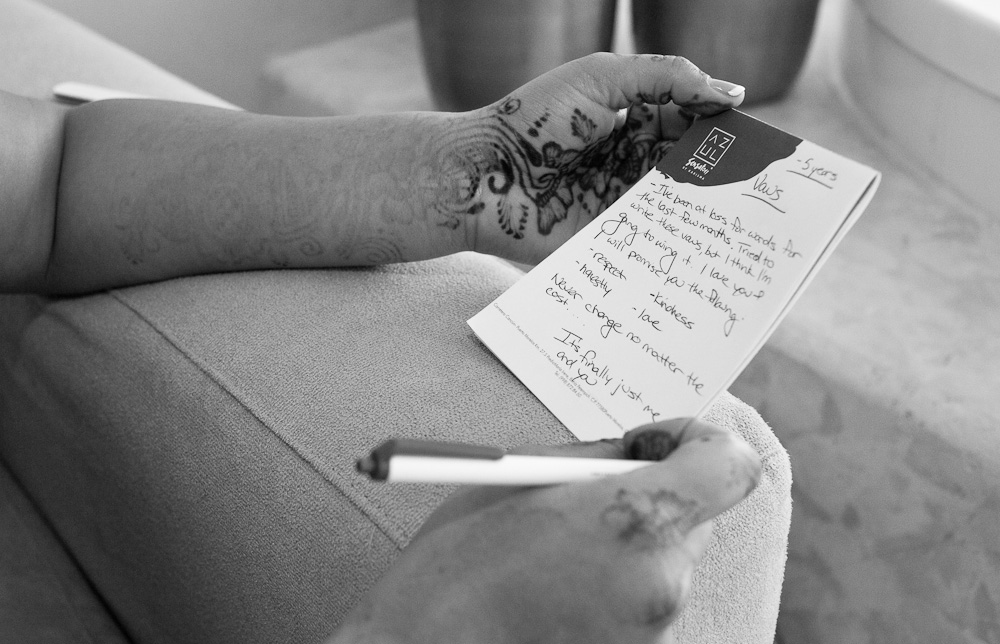 AZ
UL
Sensatori
BY KARISMA
- 5 years
Vows
- I've been at loss for words for
the last few months. Tried to
write these vows, but I think I'm
going to wing it. I love you &
I will promise you the following:
- respect
- honestly
- kindness
- love
Never change no matter the
cost. . . .
Its finally just me
and you